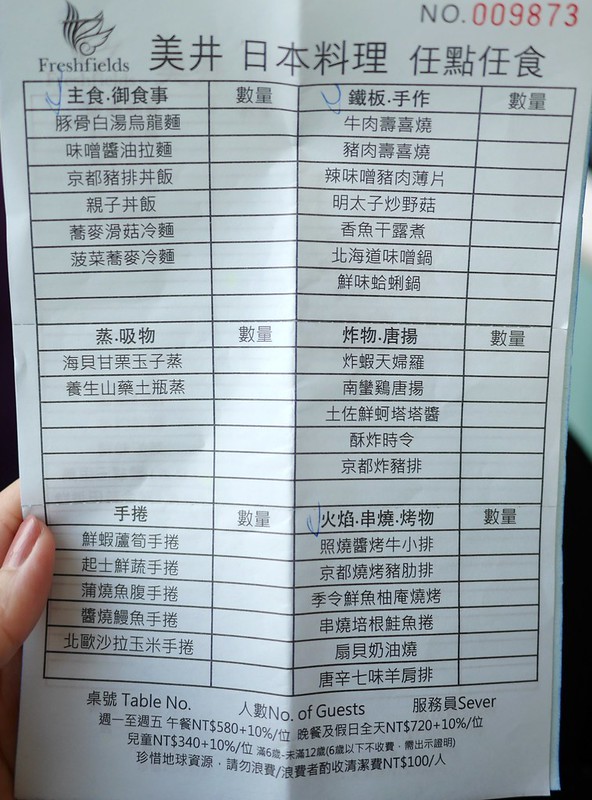 NO.009873
Freshfields
美井 日本料理 任點任食
主食.御食事 數量
豚骨白湯烏龍麵
味噌醬油拉麵
京都豬排丼飯
親子丼飯
蕎麥滑菇冷麵
菠菜蕎麥冷麵
鐵板.手作 數量
牛肉壽喜燒
豬肉壽喜燒
辣味噌豬肉薄片
明太子炒野菇
香魚干露煮
北海道味噌鍋
鮮味蛤蜊鍋
蒸.吸物 數量
海貝甘栗玉子蒸
養生山藥土瓶蒸
炸物.唐揚 數量
炸蝦天婦羅
南蠻鷄唐揚
土佐鮮蚵塔塔醬
酥炸時令
京都炸豬排
手捲 數量
鮮蝦蘆筍手捲
起士鮮蔬手捲
蒲燒魚腹手捲
醬燒鰻魚手捲
北歐沙拉玉米手捲
火焰.串燒.烤物 數量
照燒醬烤牛小排
京都燒烤豬肋排
季令鮮魚柚庵燒烤
串燒培根鮭魚捲
扇貝奶油燒
唐辛七味羊肩排
桌號 Table No. 人數No. of Guests 服務員Sever
週一至週五 午餐NT$580+10%/位 晚餐及假日全天NT$720+10%/位
兒童NT$340+10%/位 滿6歲-未滿12歲(6歲以下不收費，需出示證明)
珍惜地球資源，請勿浪費/浪費者酌收清潔費NT$100/人